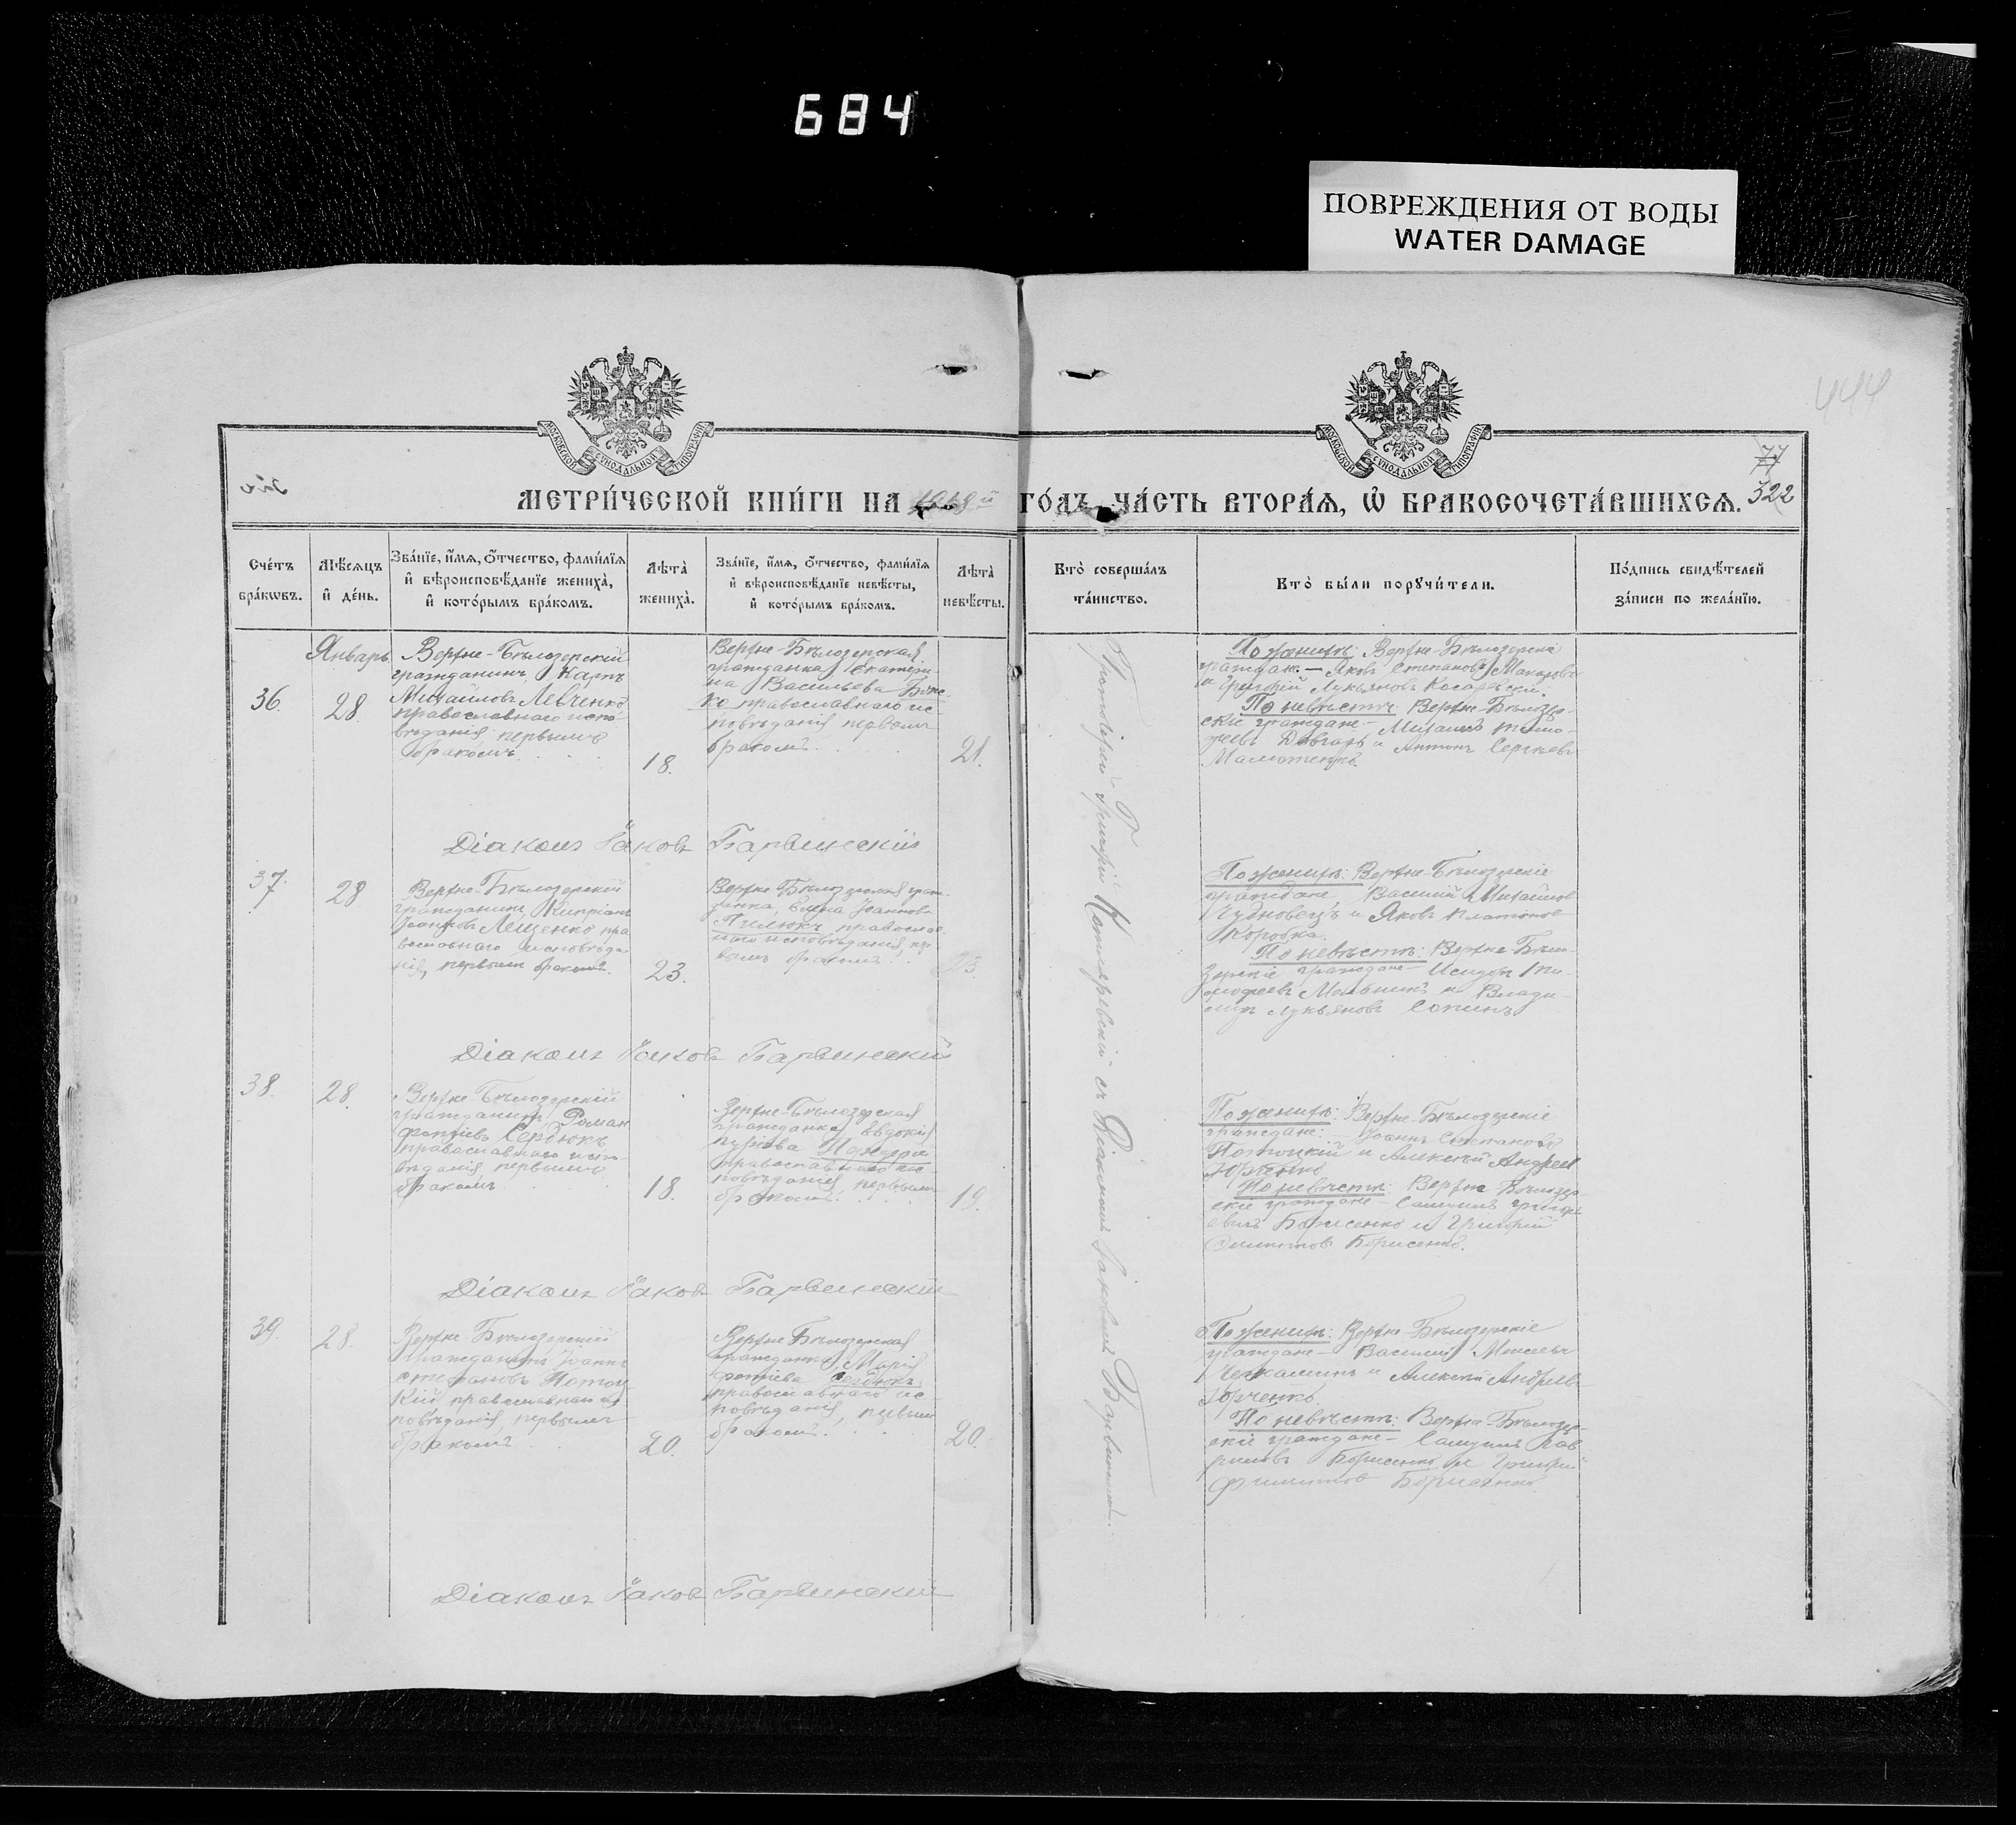 684
ПОВРЕЖДЕНИЯ ОТ ВОДЫ
WATER DAMAGE
444
МОСКОВСКОЙ СѴНОДАЛЬНОЙ ТИПОГРАФІИ
МОСКОВСКОЙ СѴНОДАЛЬНОЙ ТИПОГРАФІИ
77
322
МЕТРИ́ЧЕСКОЙ КНИ́ГИ НА
ГО́ДЪ, ЧА́СТЬ ВТОРА́Ѧ, Ѡ҆ БРАКОСОЧЕТА́ВШИХСѦ.
Сче́тъ
бра́кѡвъ.
Мѣ́сѧцъ
и҆ де́нь.
Зва́нїе, и҆́мѧ, ѻ҆́тчество, фами́лїѧ
и҆ вѣроисповѣ́данїе жениха̀,
и҆ кото́рымъ бра́комъ.
Лѣ́та̀
жениха̀.
Зва́нїе, и҆́мѧ, ѻ҆́тчество, фами́лїѧ
и҆ вѣроисповѣ́данїе невѣ́сты,
и҆ кото́рымъ бра́комъ.
Лѣ́та̀
невѣ́сты.
Кто̀ соверша́лъ
та́инство.
Кто̀ бы́ли порꙋчи́тели.
По́дпись свидѣ́телей
за́писи по жела́нїю.
36.
Январь
28
Верхне-Бѣлозерскій
гражданинъ Карпъ
Михайловъ Левченко
православнаго испо-
вѣданія первымъ
бракомъ.
18.
Верхне-Бѣлозерская
гражданка Екатери-
на Васильева
православнаго ис-
повѣданія первымъ
бракомъ.
21.
По женихѣ: Верхне-Бѣлозерскіе
граждан. – Яковъ Степановъ Макаровъ
и Григорій Лукьяновъ Косаревскій.
По невѣстѣ: Верхне-Бѣлозер-
скіе граждане – Михаилъ Тимо-
феевъ Довгаръ и Антонъ Сергѣевъ
Малютенко.
Діаконъ Іаковъ Барвинскій
37.
28
Верхне-Бѣлозерскій
гражданинъ Кипріанъ
Іоанновъ Лещенко пра
вославнаго исповѣда-
нія, первымъ бракомъ.
23.
Верхне-Бѣлозерская граж-
данка Елена Іоаннова
православ
наго исповѣданія, пер
вымъ бракомъ.
23.
По женихѣ: Верхне-Бѣлозерскіе
граждане, Василій Михайловъ
Чудновецъ и Яковъ Платоновъ
Коробка.
По невѣстѣ: Верхне-Бѣло-
зерскіе граждане – Исидоръ Ти-
мофеевъ Мельникъ и Влади-
миръ Лукьяновъ
Діаконъ Іаковъ Барвинскій
38.
28.
Верхне-Бѣлозерскій
гражданинъ Роман
Фотіевъ Сердюкъ
православнаго испо-
вѣданія первымъ
бракомъ
18.
Верхне-Бѣлозерская
гражданка Евдокія
православнаго ис
повѣданія первымъ
бракомъ.
19.
По женихѣ: Верхне-Бѣлозерскіе
граждане: Іоаннъ Степановъ
Потоцкій и Алексѣй Андреев
Юрченко
По невѣстѣ: Верхне-Бѣлозер-
скіе граждане –
Борисенко и Григорій
Филиповъ Борисенко.
Діаконъ Іаковъ Барвинскій
39.
28.
Верхне-Бѣлозерскій
гражданинъ Іоаннъ
Степановъ Потоц
кій, православнаго ис
повѣданія, первымъ
бракомъ
20.
Верхне-Бѣлозерская
гражданка, Марія
Фотіева Сердюкъ
православнаго ис
повѣданія, первым
бракомъ.
20.
По женихѣ: Верхне-Бѣлозерскіе
граждане – Василій Моисеевъ
Черкашинъ и Алексѣй Андреев
Юрченко
По невѣстѣ: Верхне-Бѣлозер-
скіе граждане –
Борисенко и Григорій
Филиповъ Борисенко.
Діаконъ Іаковъ Барвинскій
Протоіерей Григорій съ Діакономъ Іаковомъ Барвинскимъ.